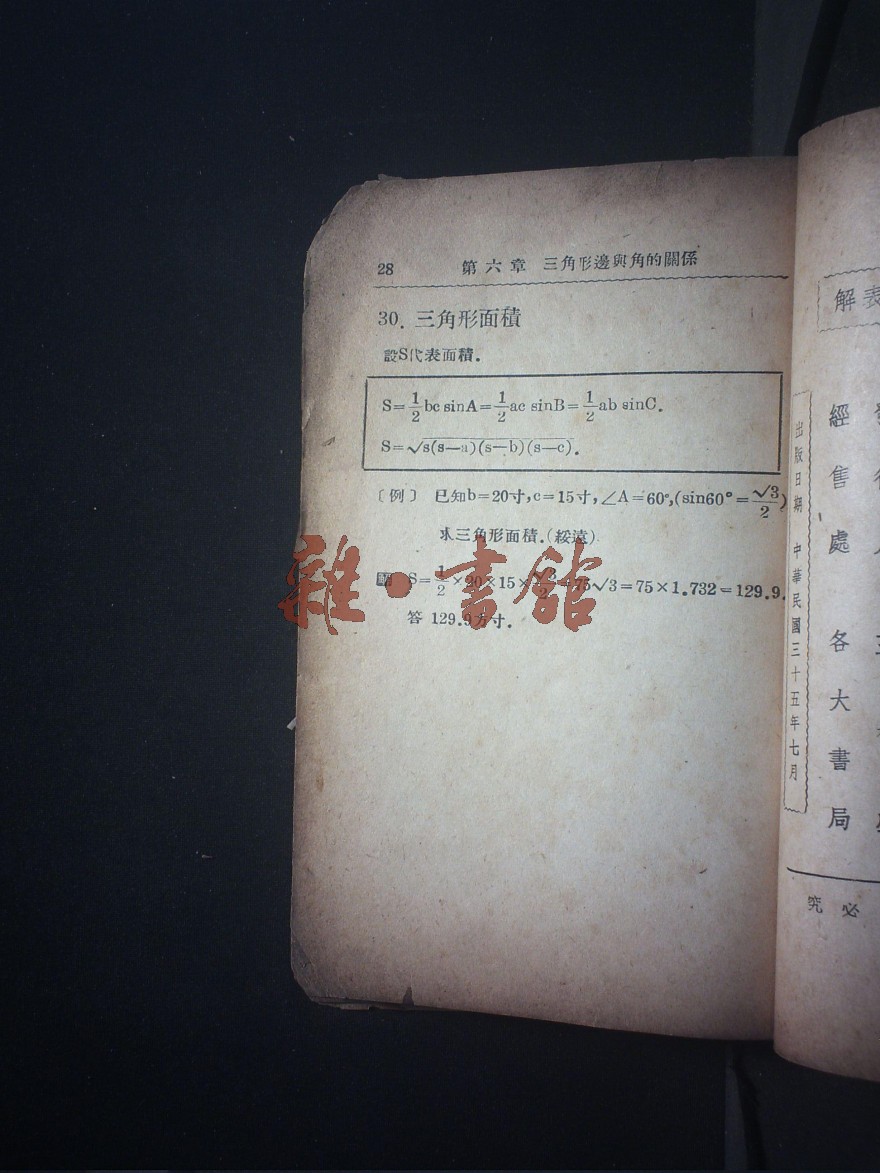 28 第六章 三角形邊與角的關係
30. 三角形面積
設S代表面積.
S=1/2 bc sinA=1/2 ac sinB=1/2 ab sinC.
S=√s(s—a)(s—b)(s—c).
〔例〕 已知b=20寸,c=15寸,∠A=60°,(sin60°=√3/2)
求三角形面積.(綏遠)
解 S=1/2×20×15×√3/2=75√3=75×1.732=129.9.
答 129.9方寸.
雜·書館
解表
經售處 各大書局
出版日期 中華民國三十五年七月
究必